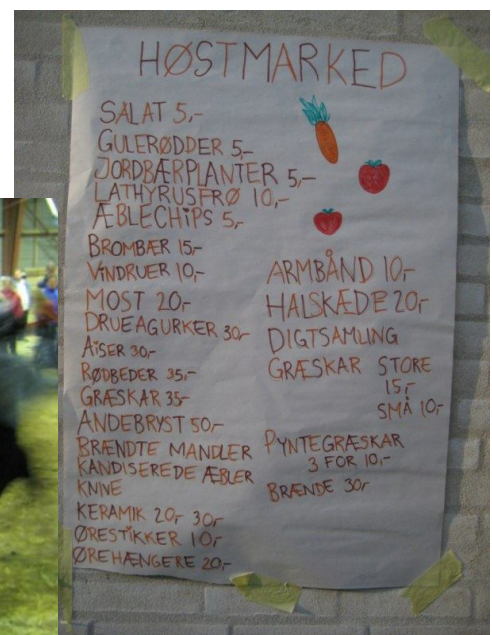 HØSTMARKED
SALAT 5,-
GULERØDDER 5,-
JORDBÆRPLANTER 5,-
LATHYRUSFRØ 10,-
ÆBLECHIPS 5,-
BROMBÆR 15,-
VINDRUER 10,-
MOST 20,-
DRUEAGURKER 30,-
AiSER 30,-
RØDBEDER 35,-
GRÆSKAR 35,-
ANDEBRYST 50,-
BRÆNDTE MANDLER
KANDISEREDE ÆBLER
KNIVE
KERAMIK 20,- 30,-
ØRESTIKKER 10,-
ØREHÆNGERE 20,-
ARMBÅND 10,-
HALSKÆDE 20,-
DIGTSAMLING
GRÆSKAR STORE
15,-
SMÅ 10,-
PYNTEGRÆSKAR
3 FOR 10,-
BRÆNDE 30,-